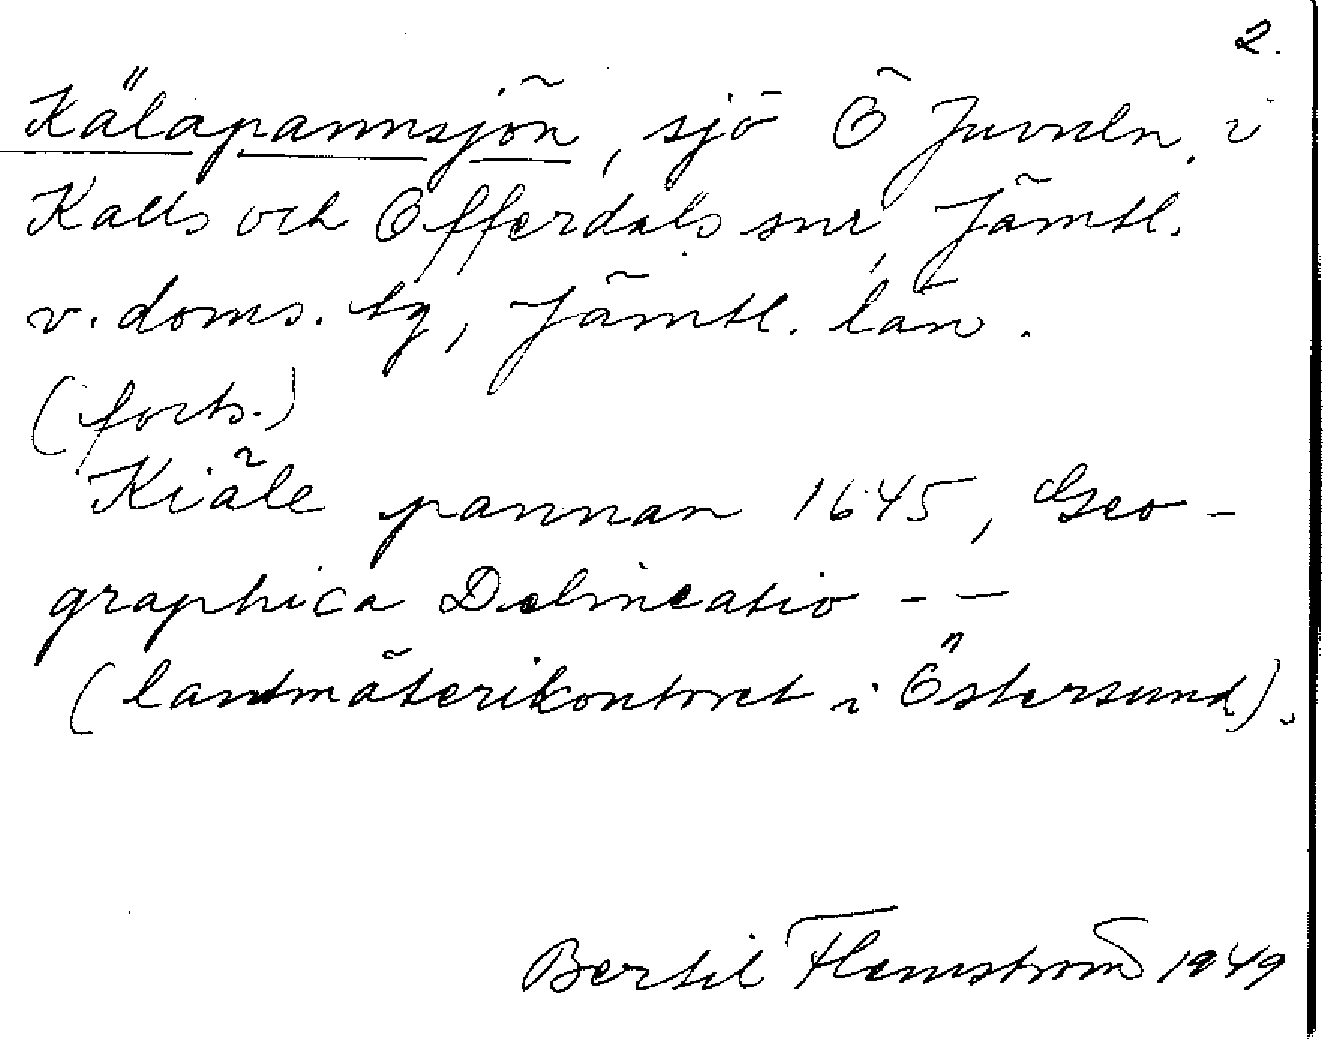 2.
Kälapannsjön, sjö Ö Juvuln, i
Kalls och Offerdals snr, Jämtl.
v. doms. tg, Jämtl. län.
(forts.)
Kiäle pannan 1645, Geo-
graphica Delineatio - -
(lantmäterikontoret i Östersund).
Bertil Flemström 1949